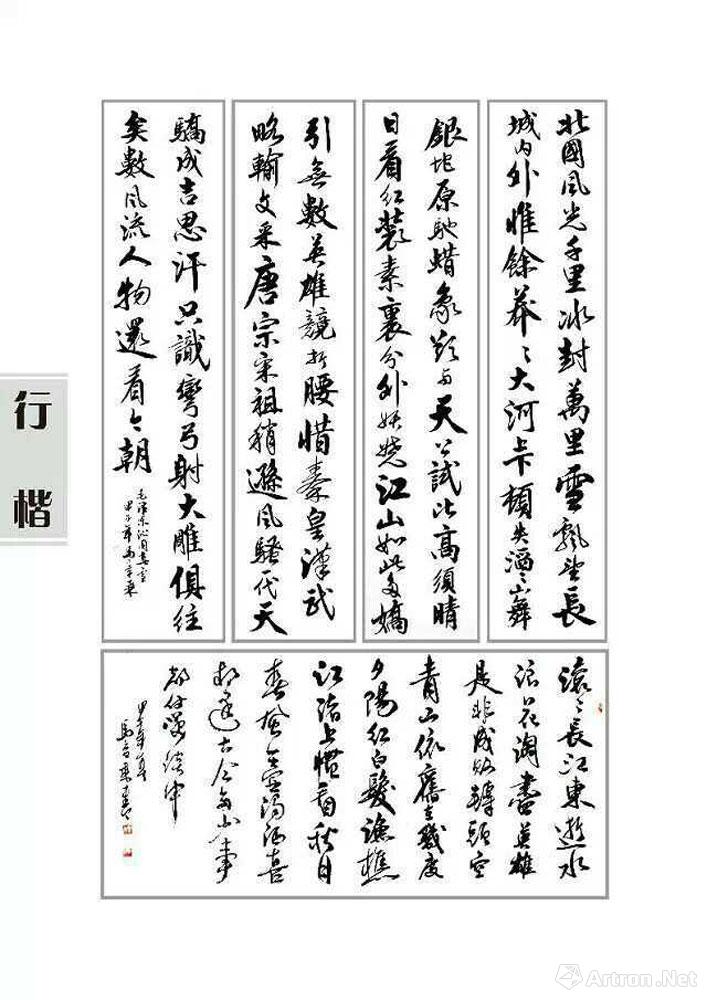 行楷
北國風光千里冰封萬里雪飄望長
城内外惟餘莽々大河上下頓失滔々山舞
銀蛇原馳蜡象欲与天公試比高須晴
日看红裝素裹分外妖娆江山如此多嬌
引無數英雄競折腰惜秦皇漢武
略輸文采唐宗宋祖稍遜風騷一代天
驕成吉思汗只識彎弓射大雕俱往
矣數風流人物還看今朝
毛澤東沁園春雪
甲午年
滚々長江東逝水
浪花淘盡英雄
是非成敗轉頭空
青山依舊在幾度
夕陽红白髮漁樵
江渚上慣看秋月
春風一壺濁酒喜
相逢古今多少事
都付笑談中
甲午年
Artron.Net